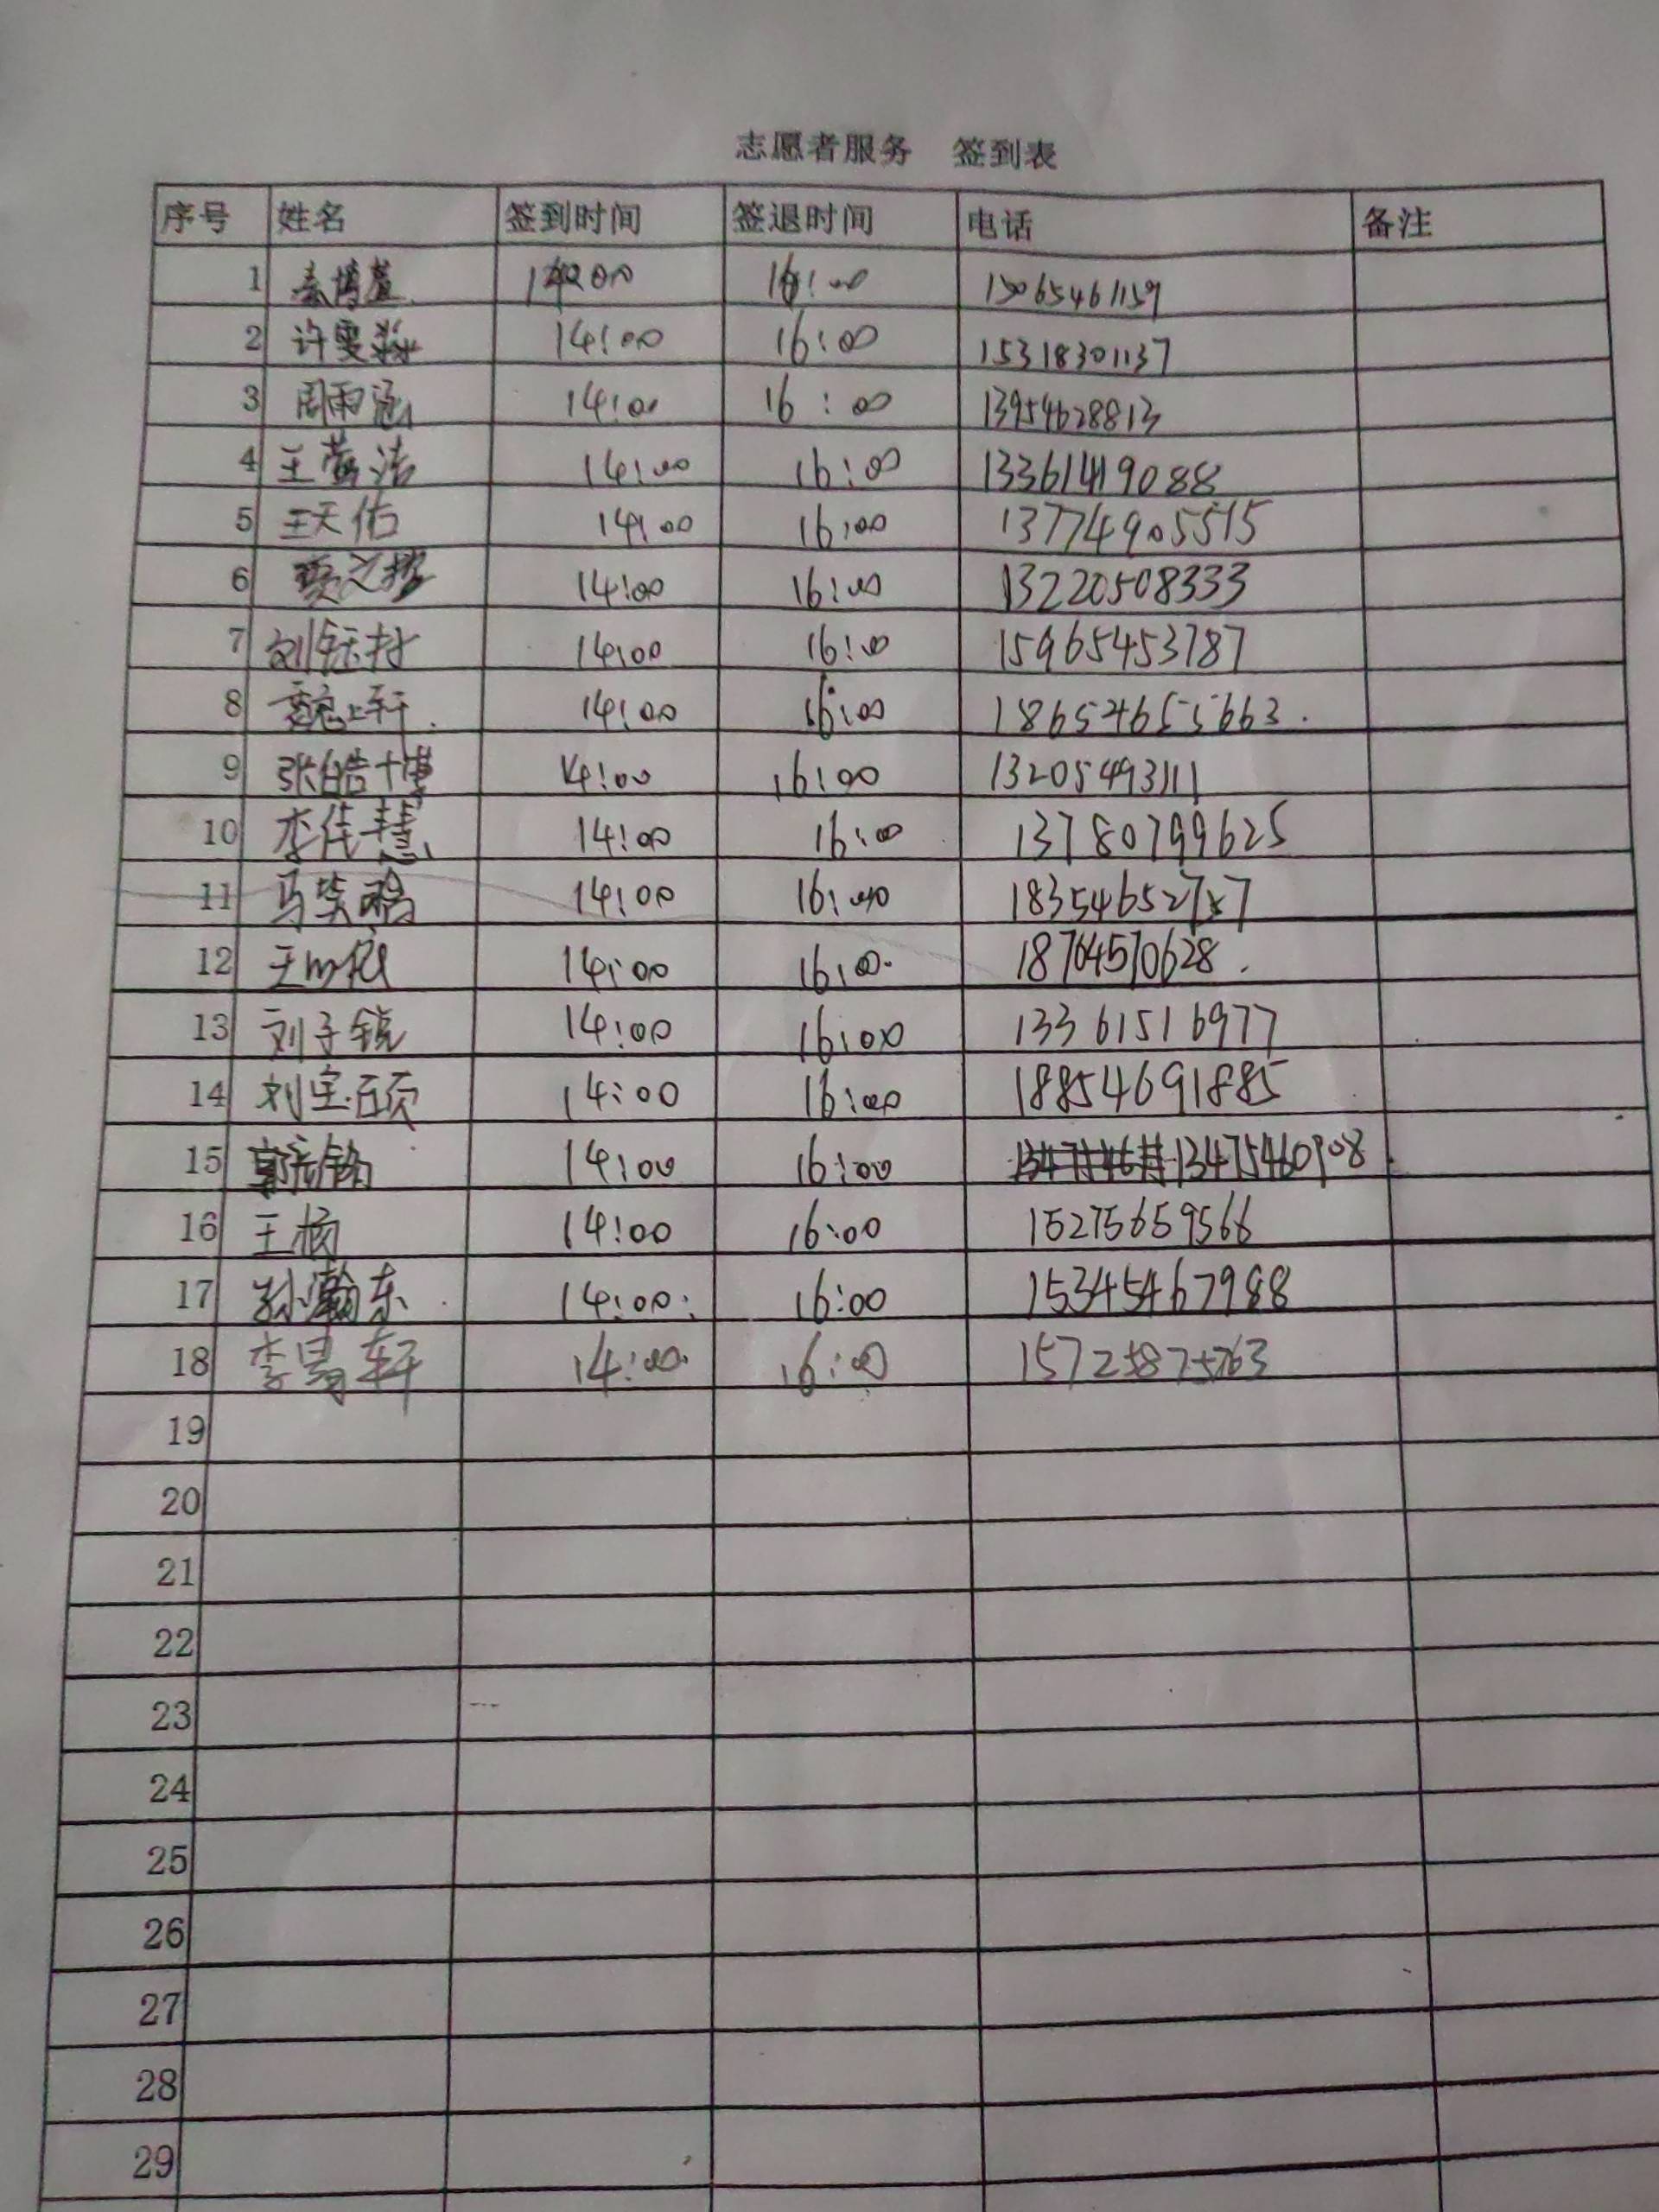 志愿者服务 签到表
序号 姓名 签到时间 签退时间 电话 备注
1 16:00 15065461159
2 许雯 14:00 16:00 15318301137
3 周雨涵 14:00 16:00 13954628813
4 王萱洁 14:00 16:00 13361419088
5 王天佑 14:00 16:00 13774905515
6 14:00 16:00 13220508333
7 刘 14:00 16:00 15965453787
8 魏上轩 14:00 16:00 18654655663.
9 张皓博 14:00 16:00 13205493111
10 李佳慧 14:00 16:00 13780799625
11 马笑 14:00 16:00
12 王 14:00 16:00 18764570628.
13 刘子锐 14:00 16:00 13361516977
14 刘宝硕 14:00 16:00 18854691885
15 郭 铭 14:00 16:00 13475460908
16 王杨 14:00 16:00 15275659566
17 孙瀚东 14:00 16:00 15345467988
18 李 轩 14:00 16:00
19
20
21
22
23
24
25
26
27
28
29